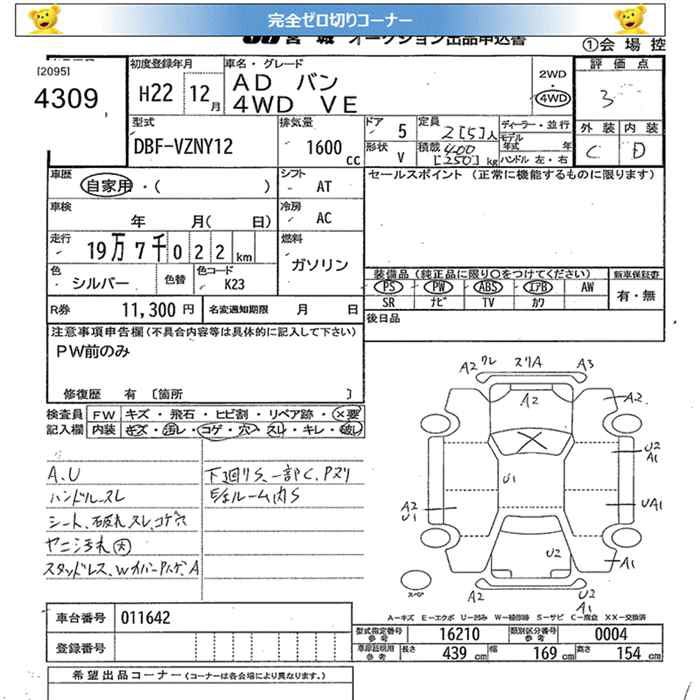 完全ゼロ切りコーナー
JU 宮城 オークション出品申込書
①会場控
[2095]
4309
初度登録年月
H22 12月
車名・グレード
AD バン
4WD VE
2WD
4WD
評価点
3
外装 内装
C D
型式
DBF-VZNY12
排気量
1600 cc
ドア 5
形状 V
定員 2[5]人
積載 400 [250] kg
ディーラー・並行
モデル年式 年
ハンドル 左・右
車歴
自家用・( )
シフト
AT
セールスポイント (正常に機能するものに限ります)
車検
年 月( 日)
冷房
AC
走行
19万7千022km
燃料
ガソリン
色
シルバー
色替
色コード
K23
装備品 (純正品に限り○をつけてください)
PS PW ABS エアB AW
SR ナビ TV カワ
新車保証書
有・無
R券 11,300円
名変通知期限 月 日
後日品
注意事項申告欄 (不具合内容等は具体的に記入して下さい)
PW前のみ
修復歴 有 〔箇所 〕
検査員 FW キズ・飛石・ヒビ割・リペア跡・×要
記入欄 内装 キズ・汚レ・コゲ・穴・スレ・キレ・破レ
A、U
ハンドルスレ
シート、スレ、コゲ穴
ヤニ汚れ 大
スタッドレス、WイパーアハゲA
下廻りS、一部C、Pズリ
室ルーム内S
A2 ワレ スリA A3
A2
A2
U2
A1
U1
A2
U1
UA1
U2
A1
スペア
A2
U2
A1
A－キズ E－エクボ U－凹み W－補修跡 S－サビ C－腐食 XX－交換済
車台番号 011642
登録番号
型式指定番号 参考 16210 類別区分番号 参考 0004
車庫証明用 参考 長さ 439 cm 幅 169 cm 高さ 154 cm
希望出品コーナー (コーナーは各会場により異なります。)